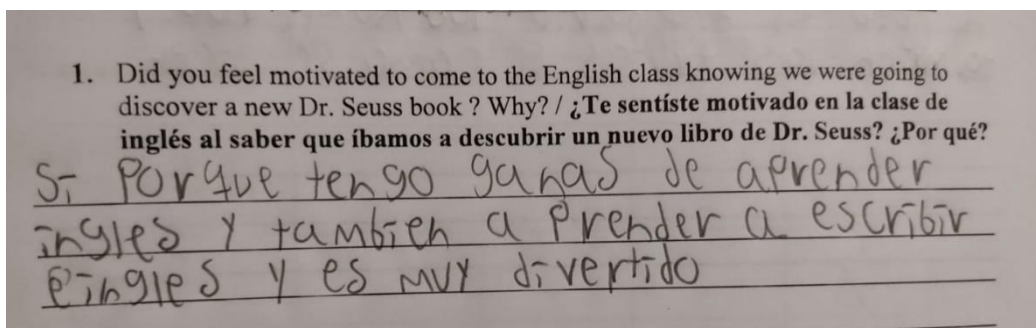 1. Did you feel motivated to come to the English class knowing we were going to
discover a new Dr. Seuss book ? Why? / ¿Te sentíste motivado en la clase de
inglés al saber que íbamos a descubrir un nuevo libro de Dr. Seuss? ¿Por qué?
Si Porque tengo ganas de aprender
ingles y tambien a prender a escribir
eingles y es muy divertido